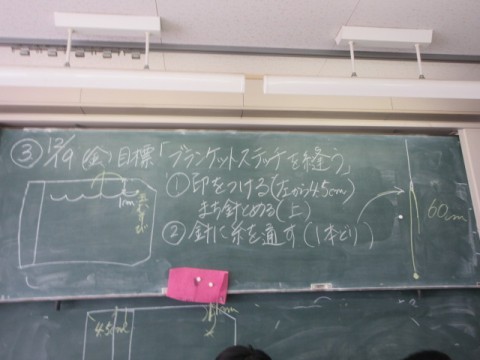 ③ 12/9 (金) 目標「ブランケットステッチを縫う」
① 印をつける(左から4.5cm)
まち針とめる(上)
② 針に糸を通す(1本どり)
60cm
1cm
4.5cm